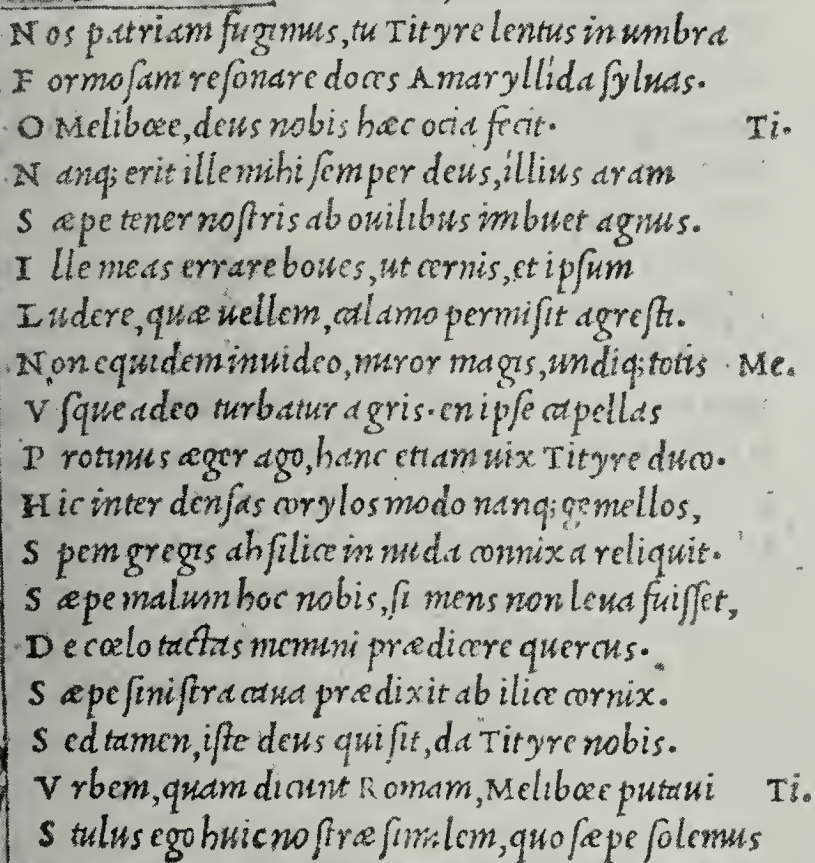 N os patriam fugimus, tu Tityre lentus in umbra
F ormoſam reſonare doces Amaryllida ſyluas.
O Melibœe, deus nobis hæc ocia fecit. Ti.
N anq; erit ille mihi ſemper deus, illius aram
S æpe tener noſtris ab ouilibus imbuet agnus.
I lle meas errare boues, ut cernis, et ipſum
L udere, quæ uellem, calamo permiſit agreſti.
N on equidem inuideo, miror magis, undiq; totis Me.
V ſque adeo turbatur agris. en ipſe capellas
P rotinus æger ago, hanc etiam uix Tityre duco.
H ic inter denſas corylos modo nanq; gemellos,
S pem gregis ah ſilice in nuda connixa reliquit.
S æpe malum hoc nobis, ſi mens non leua fuiſſet,
D e cœlo tactas memini prædicere quercus.
S æpe ſiniſtra caua prædixit ab ilice cornix.
S ed tamen, iſte deus qui ſit, da Tityre nobis.
V rbem, quam dicunt Romam, Melibœe putaui Ti.
S tulus ego huic noſtræ ſimilem, quo ſæpe ſolemus